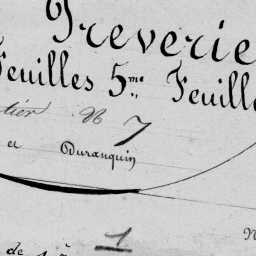 Preverie
Feuilles 5me Feuille
tier N 7
et Duranquin
1
N
de